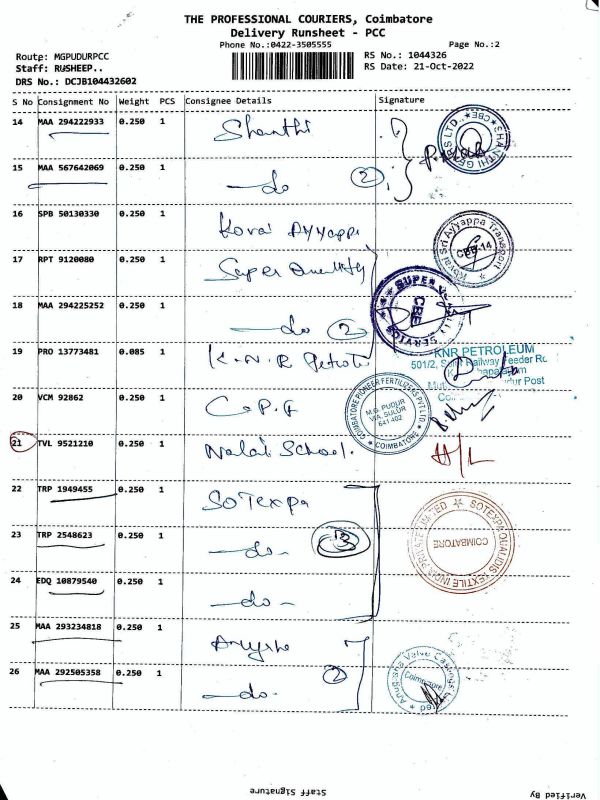 THE PROFESSIONAL COURIERS, Coimbatore
Delivery Runsheet - PCC
Phone No.:0422-3505555 Page No.:2
Route: MGPUDURPCC RS No.: 1044326
Staff: RUSHEEP.. RS Date: 21-Oct-2022
DRS No.: DCJB104432602
S No Consignment No Weight PCS Consignee Details Signature
14 MAA 294222933 0.250 1 Shanthi
SHANTHI GEARS LTD., CBE
15 MAA 567642069 0.250 1 do 2
16 SPB 50130330 0.250 1 Kovai Ayyappa
Kovai Sri Ayyappa Transport CBE-14
17 RPT 9120080 0.250 1 Super Quality
SUPER SERVICE CBE
18 MAA 294225252 0.250 1 do 2
19 PRO 13773481 0.085 1 K.N.R Petrol
KNR PETROLEUM
501/2, Railway Feeder Rd
Post
20 VCM 92862 0.250 1 C.P.F
COIMBATORE PIONEER FERTILIZERS PVT LTD
M.G. PUDUR
VIA. SULUR
641 402
COIMBATORE
21 TVL 9521210 0.250 1 Nalai School.
H/L
22 TRP 1949455 0.250 1 SoTexpa
SOTEXPAQUALIDIS TEXTILE INDIA PRIVATE LIMITED
COIMBATORE
23 TRP 2548623 0.250 1 do 3
24 EDQ 10879540 0.250 1 do
25 MAA 293234818 0.250 1
26 MAA 292505358 0.250 1 do 2
Anugraha Valve Castings Limited
Coimbatore
Staff Signature Verified By